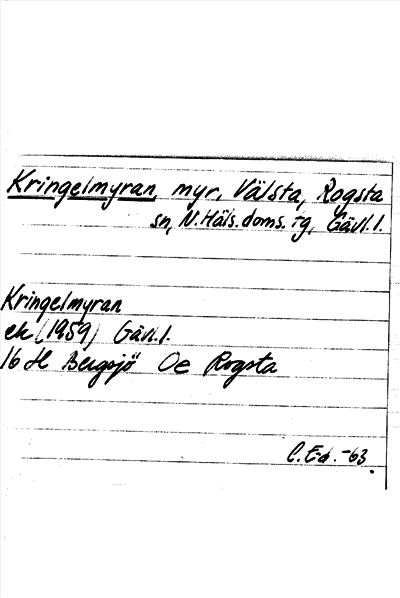 Kringelmyran, myr, Välsta, Rogsta
sn, N. Häls. doms. tg, Gävl. l.
Kringelmyran
ek (1959) Gävl. l.
16 H Bergsjö Oe Rogsta
C. Ed. -63.